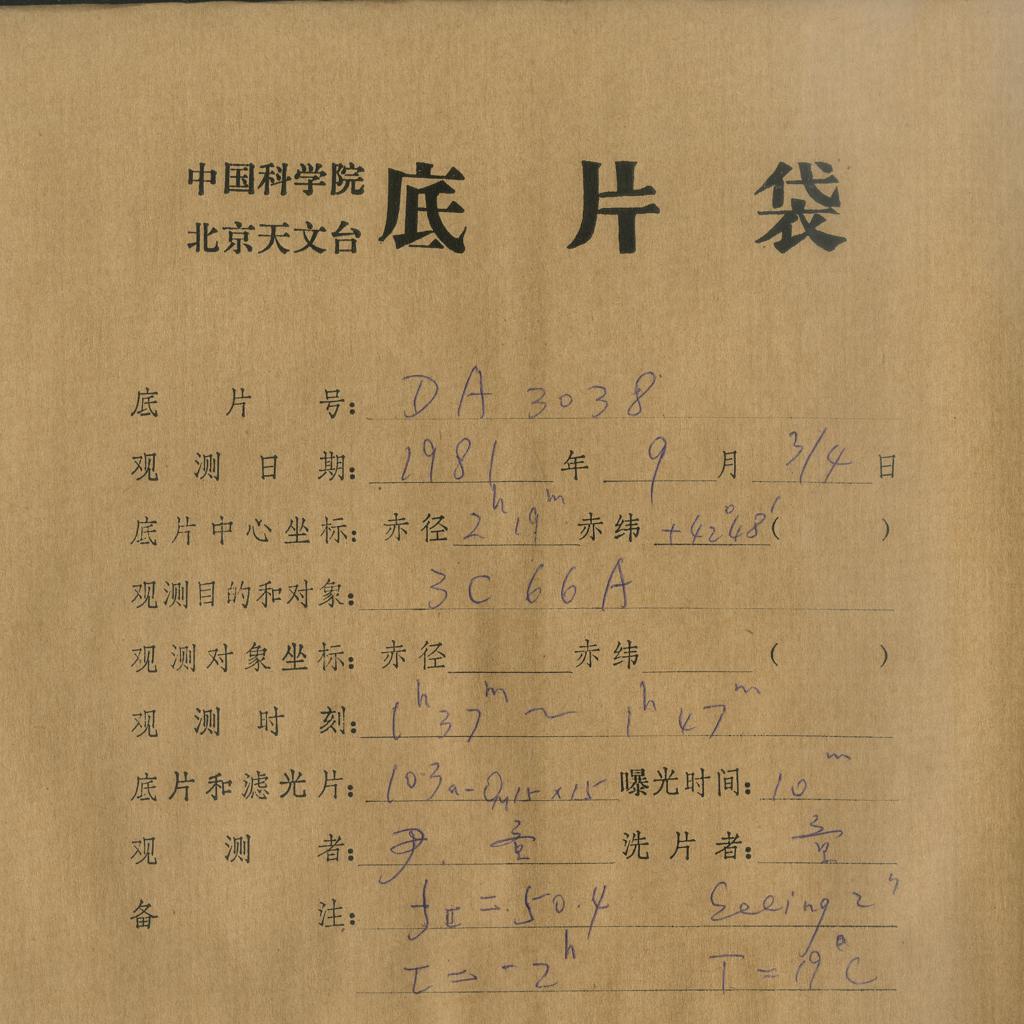 中国科学院
北京天文台 底片袋
底片号: DA 3038
观测日期: 1981年 9月 3/4日
底片中心坐标: 赤径 2h 19m 赤纬 +42°48′( )
观测目的和对象: 3C 66A
观测对象坐标: 赤径 赤纬 ( )
观测时刻: 1h 37m ~ 1h 47m
底片和滤光片: 103a-O, 15×15 曝光时间: 10m
观测者: 尹. 洗片者:
备注: fII = 50.4 Seeing 2″
t = -2h T = 19°C